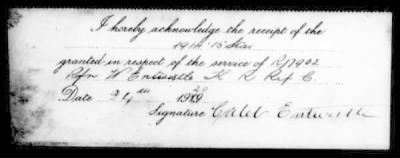 I hereby acknowledge the receipt of the
1914 15 Star
granted in respect of the service of R/7902
Rfn W Entwistle K R Rif C.
Date 1920
Signature Caleb Entwistle